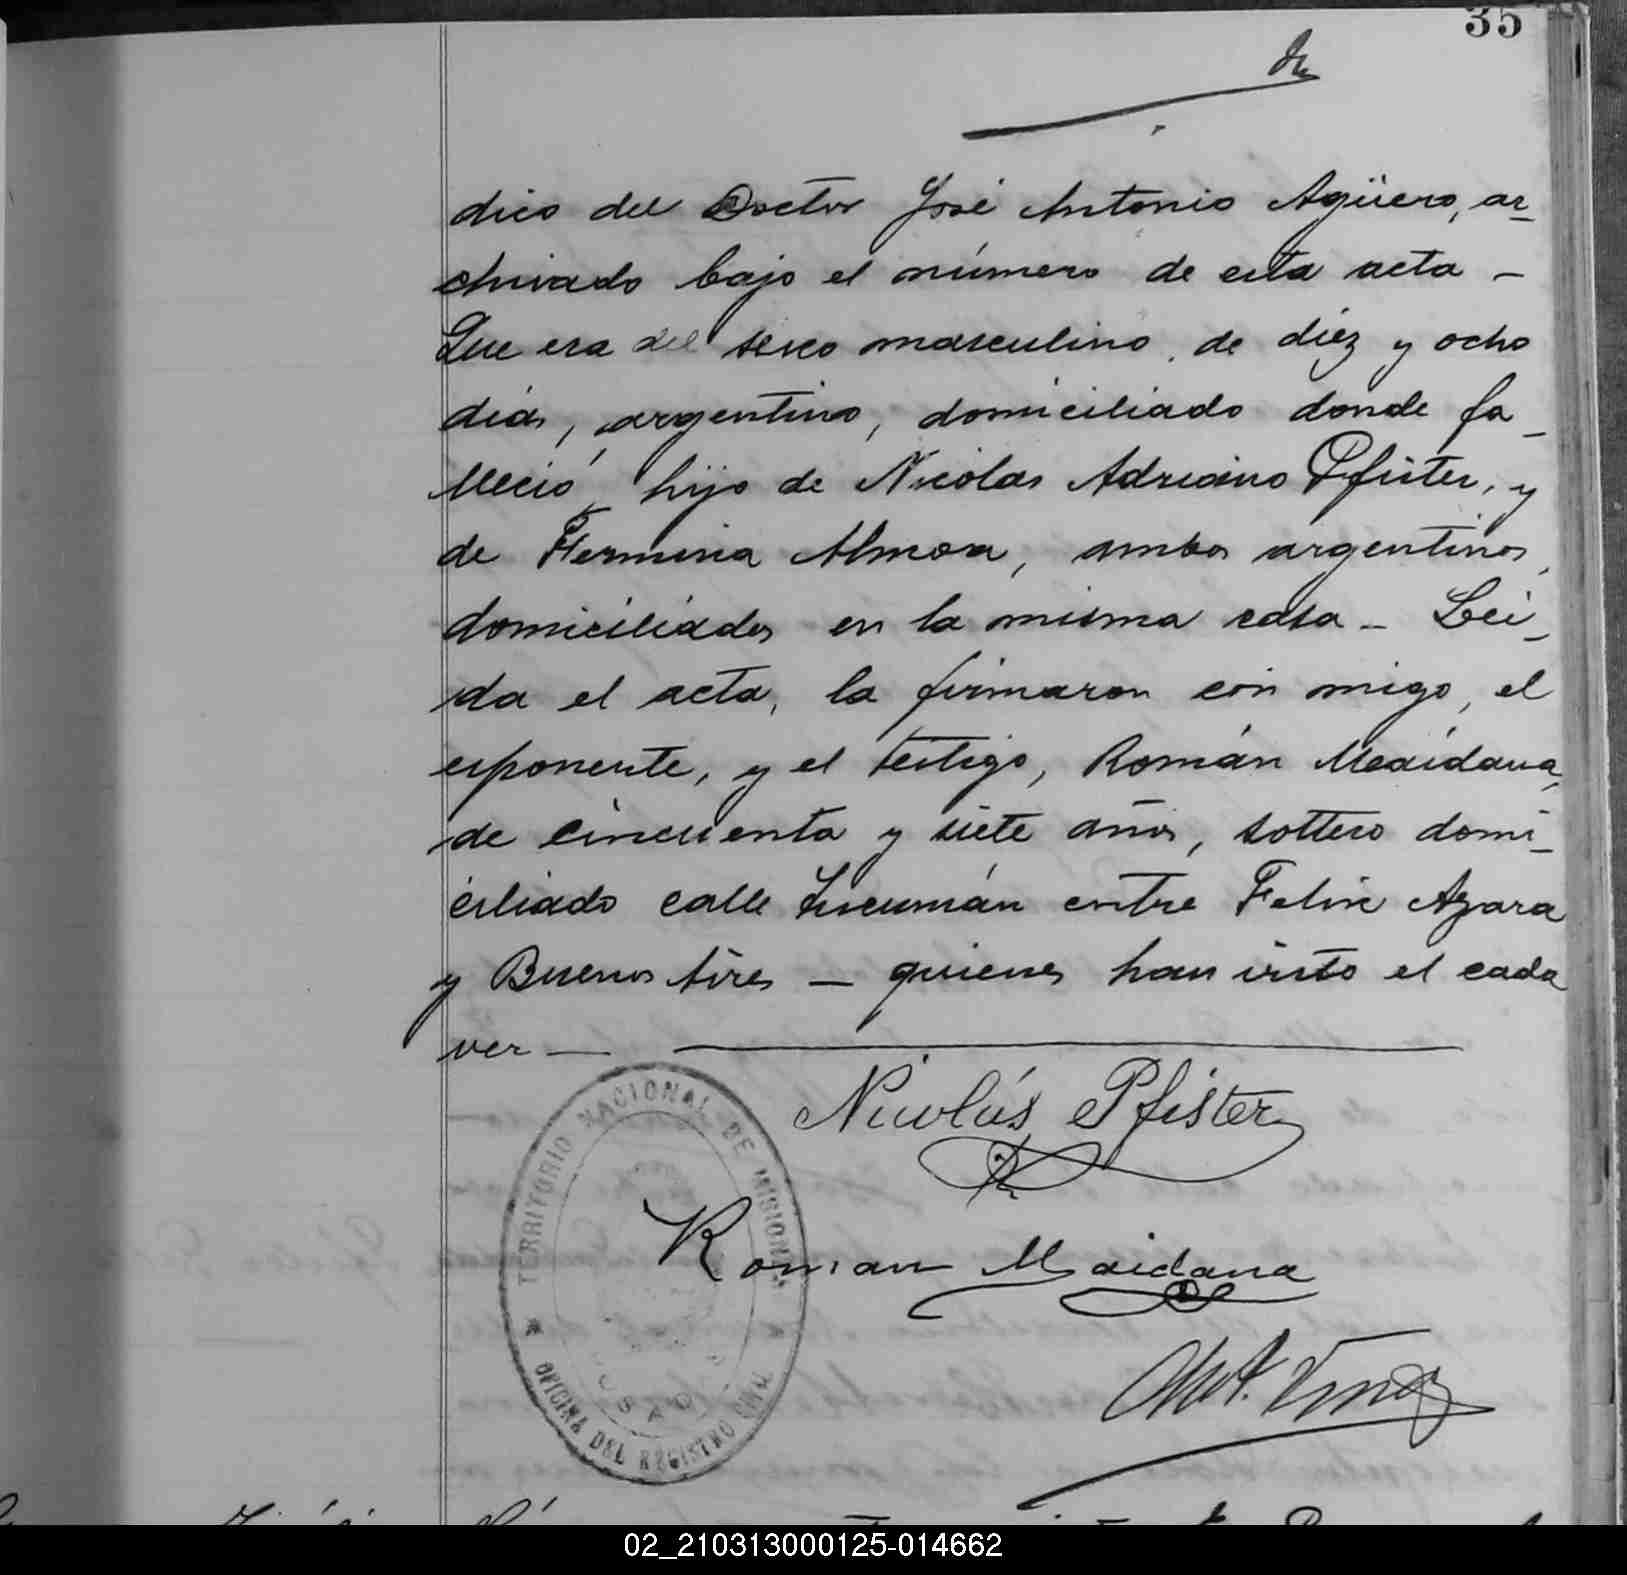 35
dico del Doctor José Antonio Agüero, ar_
chivado bajo el número de esta acta –
Que era del sexo masculino, de diéz y ocho
días, argentino, domiciliado donde fa_
lleció, hijo de Nicolas Adriano Pfister, y
de Fermina Almoa, ambos argentinos,
domiciliados en la misma casa – Lei_
da el acta, la firmaron con migo, el
esponente, y el testigo, Román Maidana,
de cincuenta y siete años, soltero domi_
ciliado calle Tucumán entre Felix Azara
y Buenos Aires – quienes han visto el cada
ver —
Nicolás Pfister
Roman Maidana
TERRITORIO NACIONAL DE MISIONES
OFICINA DEL REGISTRO CIVIL
02_210313000125-014662